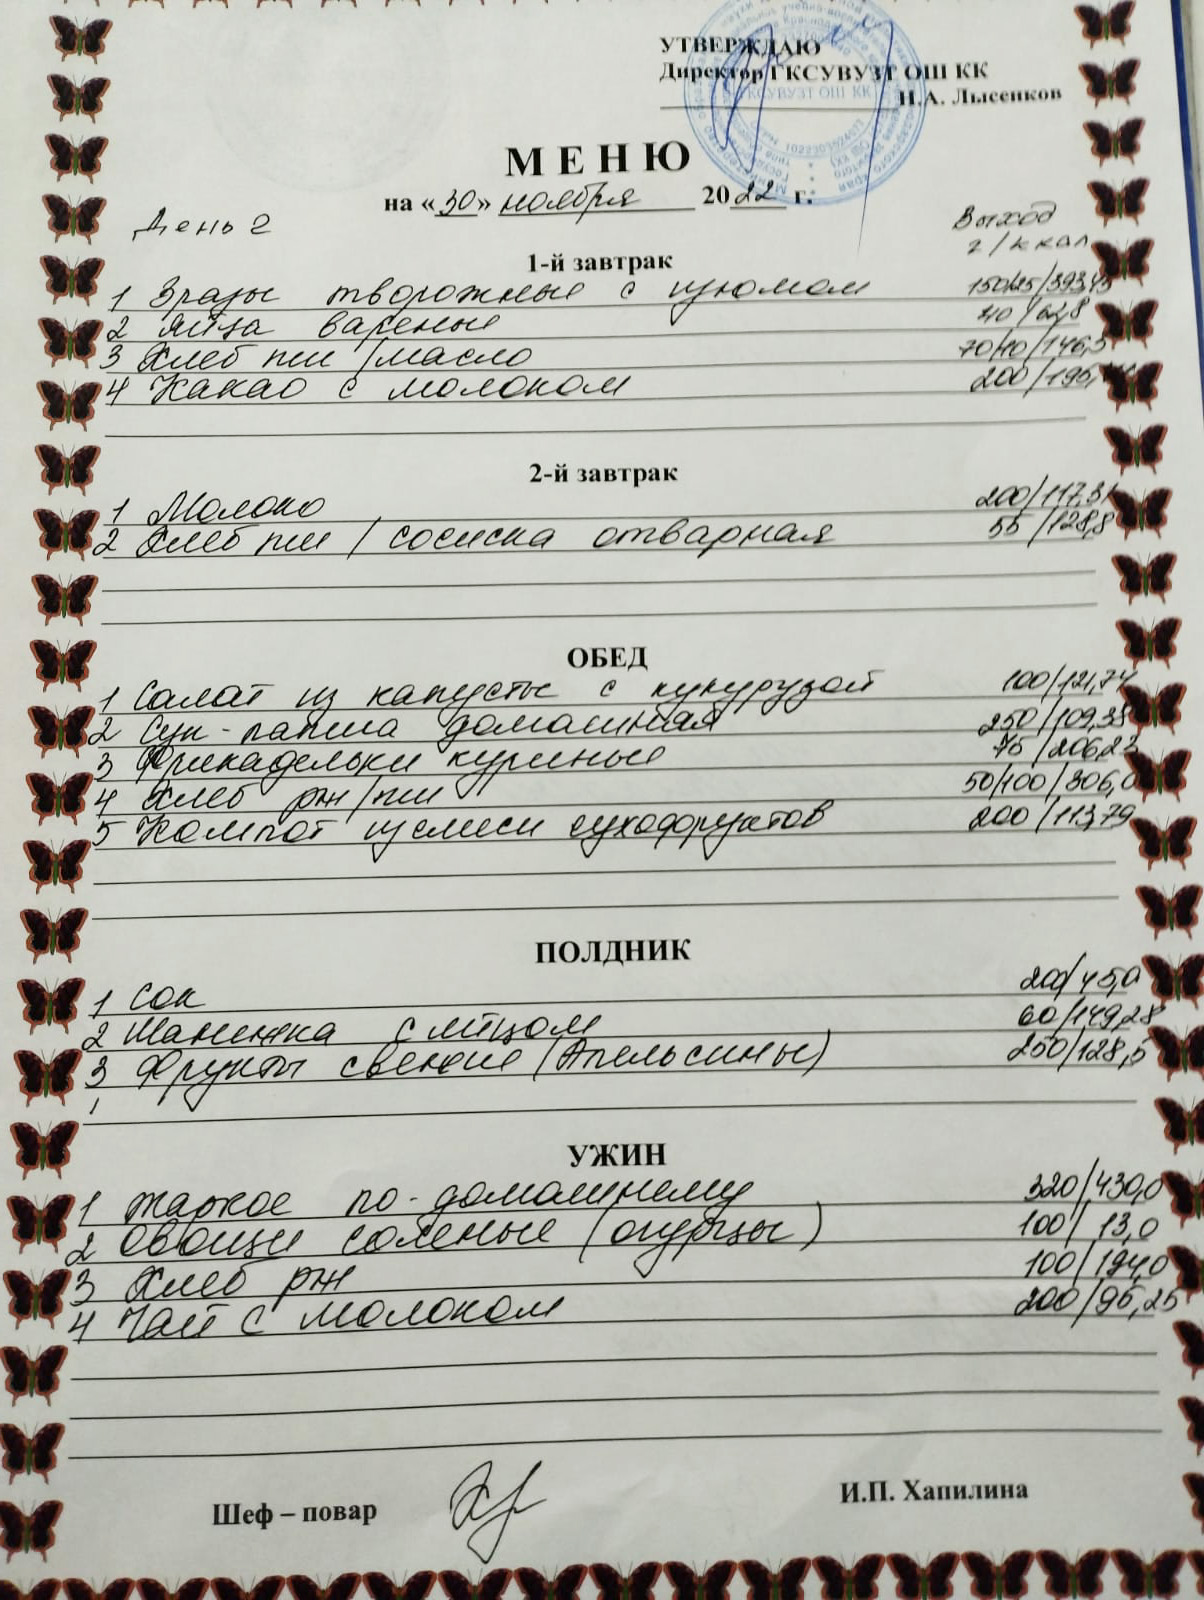 УТВЕРЖДАЮ
Директор ГКСУВУЗТ ОШ КК
Н.А. Лысенков
МЕНЮ
на «30» ноября 2022 г.
День 2
Выход
г/ккал
1-й завтрак
1 Зразы творожные с изюмом 150/15/393,45
2 Яйца вареные 40/62,8
3 Хлеб пш/масло 70/10/146,5
4 Какао с молоком 200/195,
2-й завтрак
1 Молоко 200/117,31
2 Хлеб пш/сосиска отварная 55/128,8
ОБЕД
1 Салат из капусты с кукурузой 100/121,74
2 Суп-лапша домашняя 250/109,38
3 Фрикадельки куриные 75/206,23
4 Хлеб рж/пш 50/100/306,0
5 Компот из смеси сухофруктов 200/113,79
ПОЛДНИК
1 Сок 200/45,0
2 Шанежка с яйцом 60/149,28
3 Фрукты свежие (Апельсины) 250/128,5
УЖИН
1 Жаркое по-домашнему 320/430,0
2 Овощи соленые (огурцы) 100/13,0
3 Хлеб рж 100/194,0
4 Чай с молоком 200/95,25
Шеф – повар
И.П. Хапилина